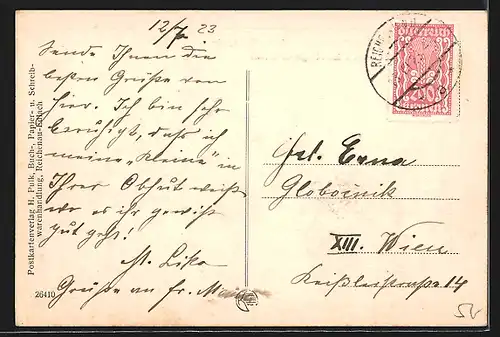 12/7 23
Sende Ihnen die
besten Grüße von
hier. Ich bin sehr
beruhigt, daß ich
meine „Kleine" in
Ihrer Obhut weiß
wo es ihr gewiß
gut geht!
M. Lika
Grüße an Fr.
Postkartenverlag H. Pulk, Buch-, Papier- u. Schreib-
warenhandlung, Reichenau-Edlach
26410
REICHENAU
Österreich
200
Kronen
Frl. Erna
Globočnik
XIII. Wien
Keißlerstraße 14